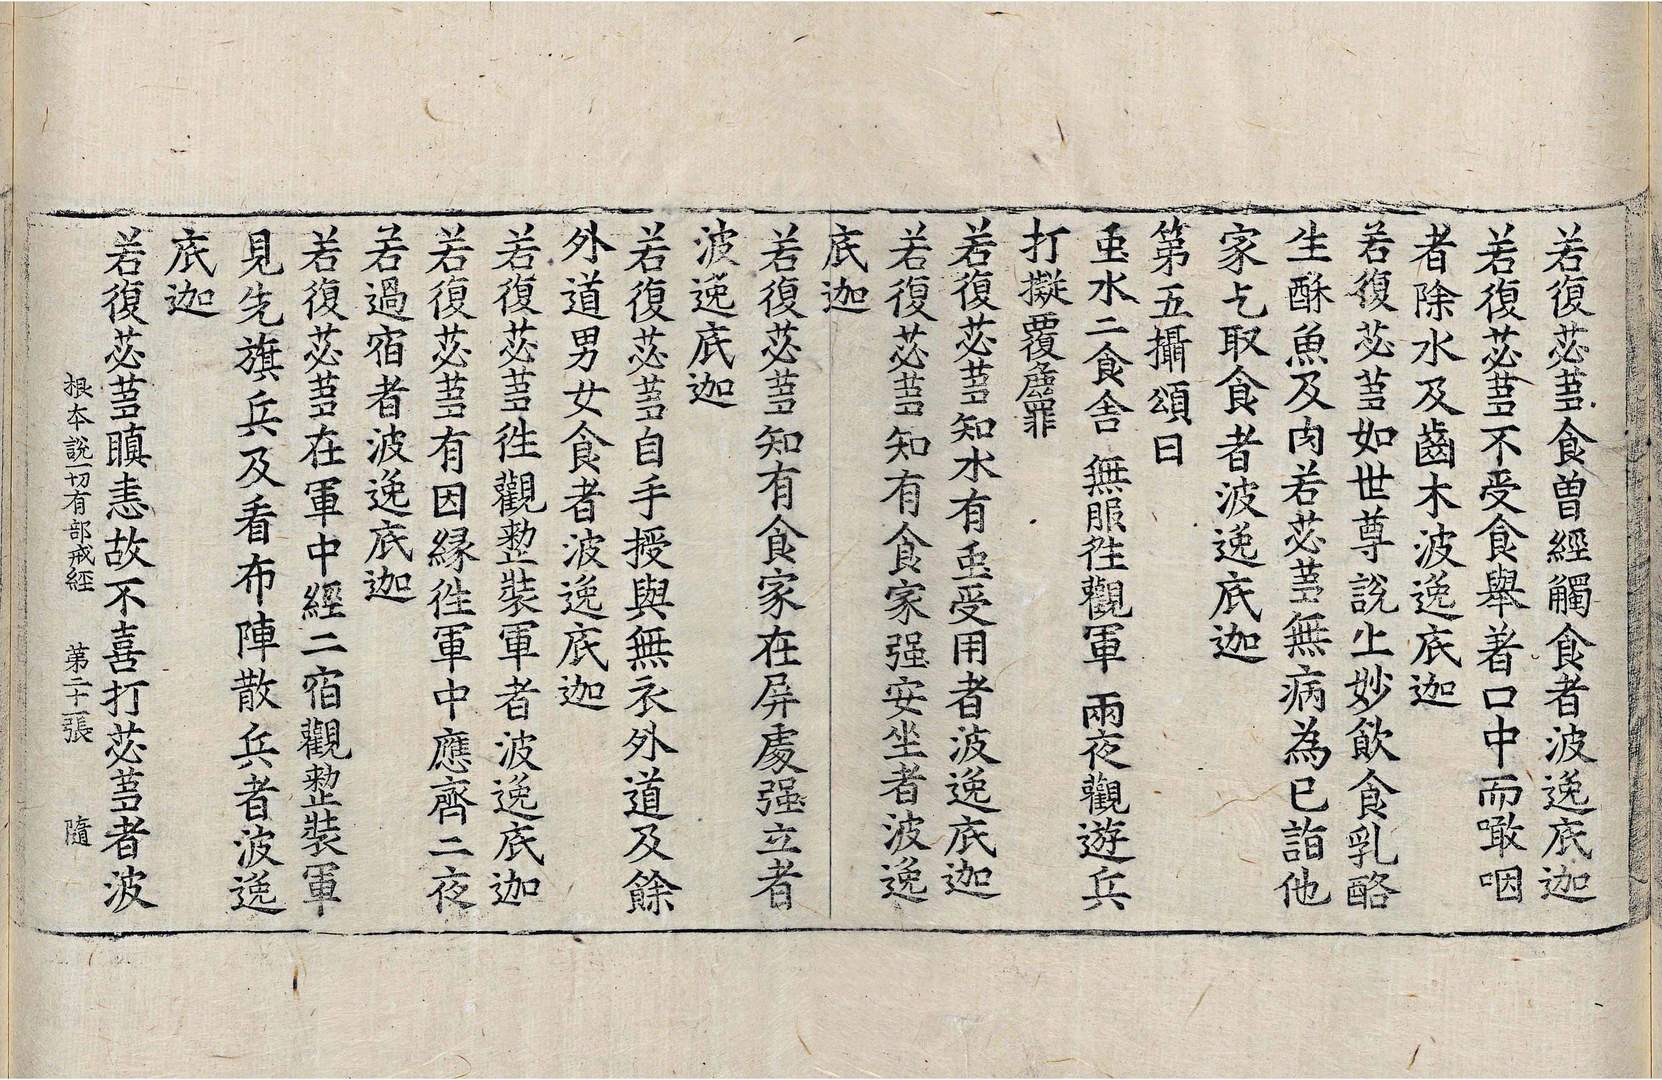 若復苾蒭食曾經觸食者波逸底迦
若復苾蒭不受食舉著口中而噉咽
者除水及齒木波逸底迦
若復苾蒭如世尊說上妙飲食乳酪
生酥魚及肉若苾蒭無病為己詣他
家乞取食者波逸底迦
第五攝頌曰
虫水二食舍 無服徃觀軍 兩夜觀遊兵
打擬覆麁罪
若復苾蒭知水有虫受用者波逸底迦
若復苾蒭知有食家强安坐者波逸
底迦
若復苾蒭知有食家在屏處强立者
波逸底迦
若復苾蒭自手授與無衣外道及餘
外道男女食者波逸底迦
若復苾蒭徃觀整裝軍者波逸底迦
若復苾蒭有因縁徃軍中應齊二夜
若過宿者波逸底迦
若復苾蒭在軍中經二宿觀整裝軍
見先旗兵及看布陣散兵者波逸
底迦
若復苾蒭瞋恚故不喜打苾蒭者波
根本說一切有部戒經 第二十一張 隨